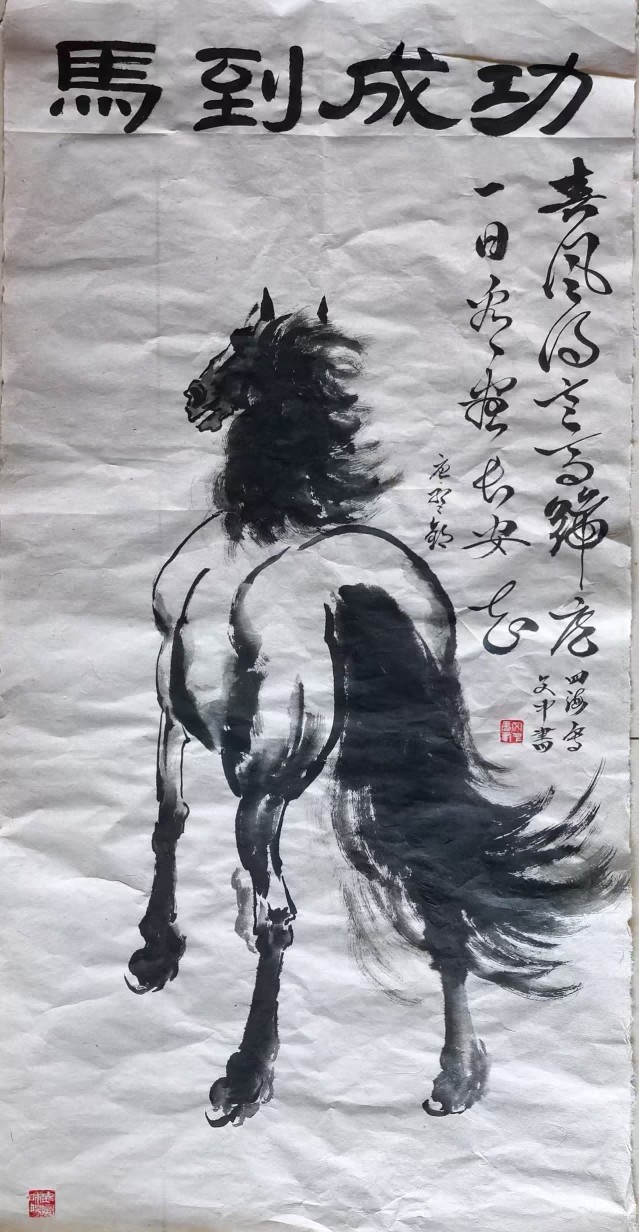 馬到成功
春風得意馬蹄疾
一日看盡長安花
唐孟郊
四海寫
文中書